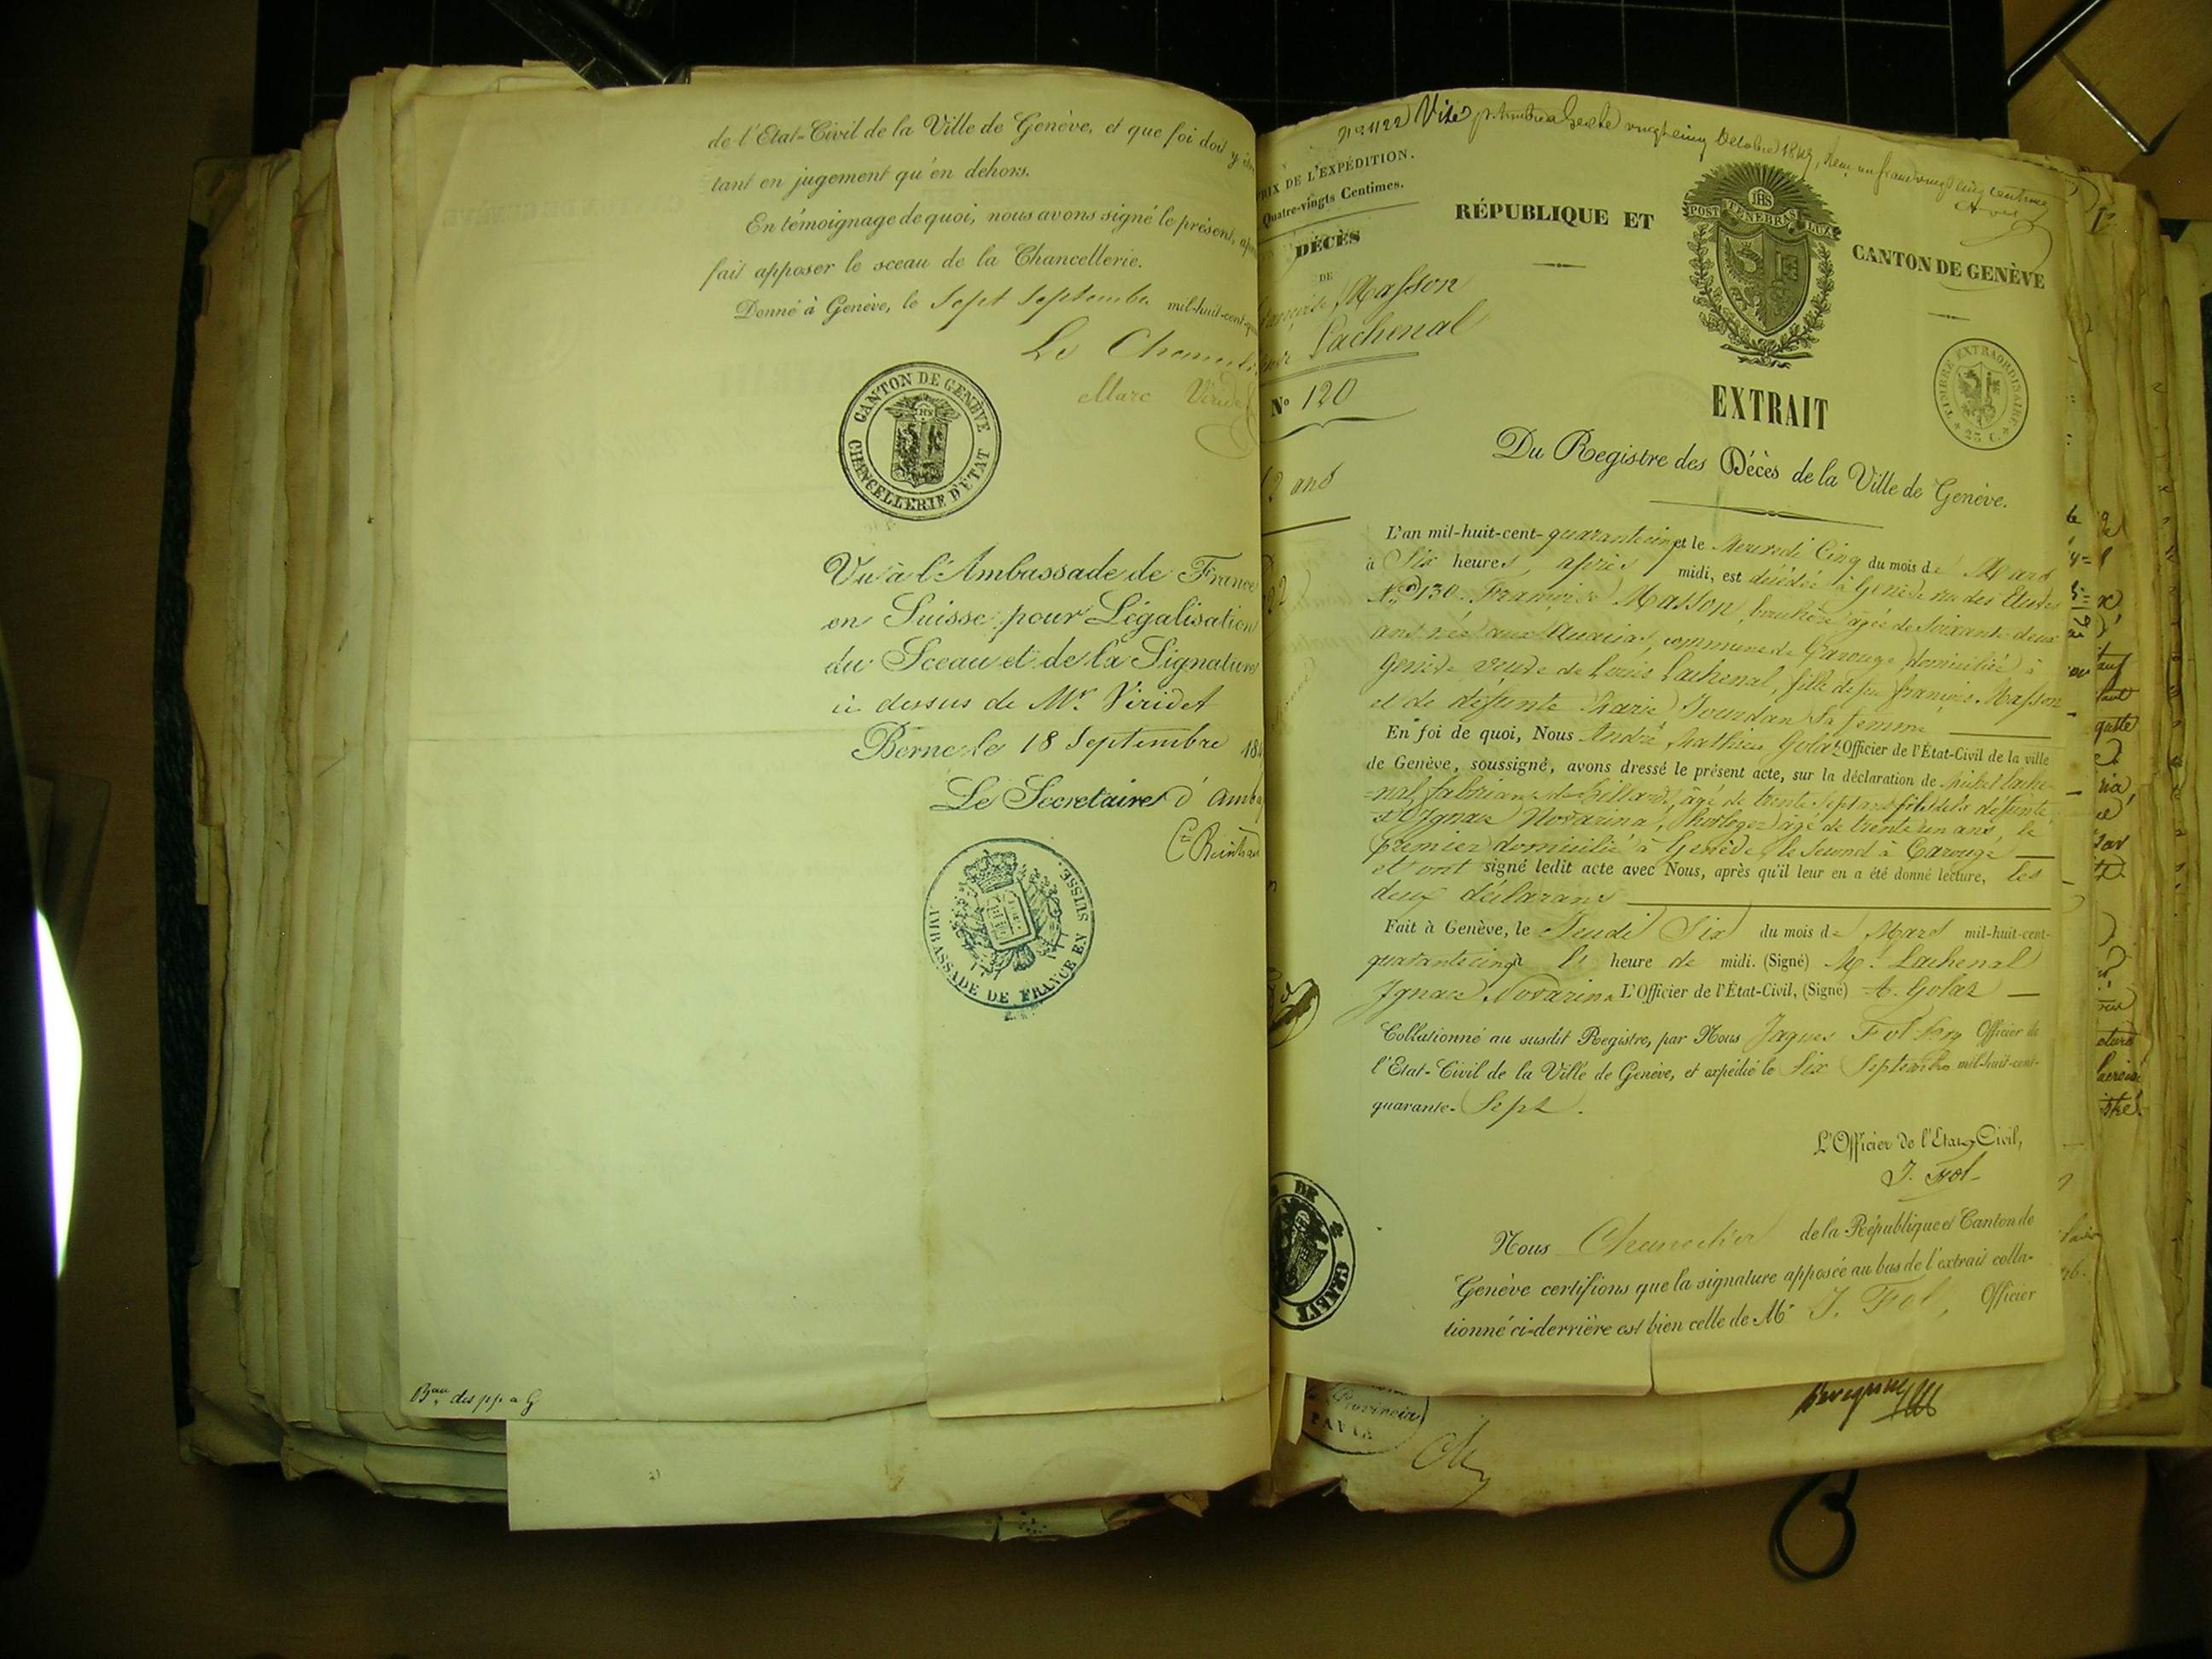 de l'Etat-Civil de la Ville de Genève, et que foi doit y être
tant en jugement qu'en dehors.
En témoignage de quoi, nous avons signé le présent,
fait apposer le sceau de la Chancellerie.
Donné à Genève, le Sept Septembre mil-huit-cent-
Le Chancelier
Marc Viridet
CANTON DE GENÈVE
CHANCELLERIE D'ÉTAT
Vu à l'Ambassade de France
en Suisse pour Légalisation
du Sceau et de la Signature
ci dessus de Mr. Viridet
Berne le 18 Septembre 184
Le Secretaire d'Amba
AMBASSADE DE FRANCE EN SUISSE.
Bau des pp a G
No 1122 Visé vingt cinq Octobre 1847, un franc vingt cinq centimes
PRIX DE L'EXPÉDITION.
Quatre-vingts Centimes.
DÉCÈS
DE
Françoise Masson
Lachenal
No 120
2 ans
RÉPUBLIQUE ET
CANTON DE GENÈVE
POST TENEBRAS LUX
IHS
TIMBRE EXTRAORDINAIRE
25 C.
EXTRAIT
Du Registre des Décès de la Ville de Genève.
L'an mil-huit-cent-quarante cinq et le Mercredi Cinq du mois de Mars
à Six heures, après midi, est décédée à Genève rue des Etuves
No 130. Françoise Masson, âgée de Soixante deux
ans née aux Acacias, commune de Carouge, domiciliée à
Genève veuve de Louis Lachenal, fille de feu François Masson
et de défunte Marie Jourdan sa femme
En foi de quoi, Nous André Mathieu Golaz Officier de l'État-Civil de la ville
de Genève, soussigné, avons dressé le présent acte, sur la déclaration de Michel Lache-
=nal, fabricant de billards, âgé de trente sept ans fils de la défunte,
et d'Ignace Novarina, horloger âgé de trente un ans, le
premier domicilié à Genève, le second à Carouge
et ont signé ledit acte avec Nous, après qu'il leur en a été donné lecture, les
deux déclarans
Fait à Genève, le Jeudi Six du mois de Mars mil-huit-cent-
quarante cinq à l' heure de midi. (Signé) M. Lachenal
Ignace Novarina L'Officier de l'État-Civil, (Signé) A. Golaz
Collationné au susdit Registre, par Nous Jaques Fol Officier de
l'Etat-Civil de la Ville de Genève, et expédié le Six Septembre mil-huit-cent-
quarante-Sept.
L'Officier de l'Etat-Civil,
J. Fol
DE GENÈVE
Nous Chancelier de la République et Canton de
Genève certifions que la signature apposée au bas de l'extrait colla-
tionné ci-derrière est bien celle de Mr J. Fol, Officier
Provincia
PAVIA